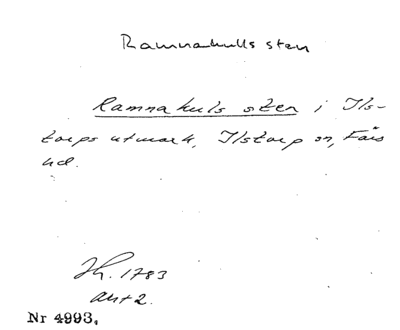 Ramnakulls sten
Ramnakuls sten i Ils-
torps utmark, Ilstorp sn, Färs
hd.
Jh. 1783
ant 2.
Nr 4993.